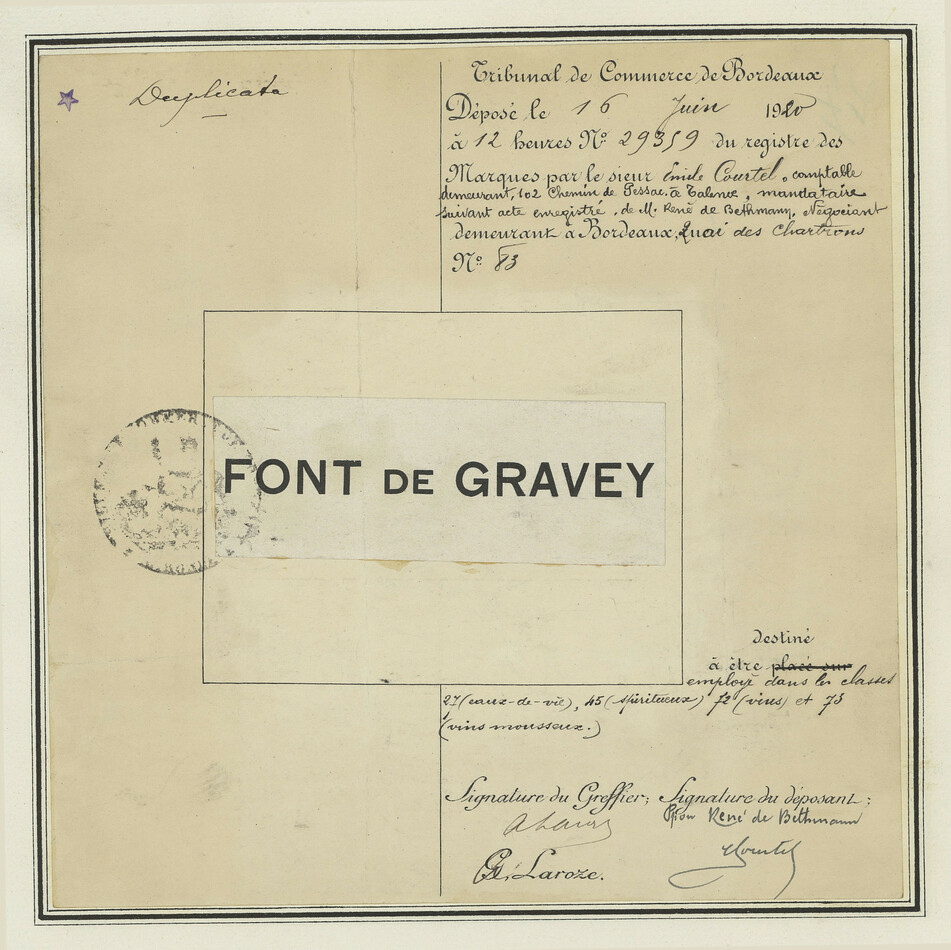 Duplicata
Tribunal de Commerce de Bordeaux
Déposé le 16 Juin 1920
à 12 heures Nº 29359 du registre des
Marques par le sieur Emile Courtel, comptable
demeurant, 102 Chemin de Pessac à Talence, mandataire
suivant acte enregistré, de M. René de Bethmann, Négociant
demeurant à Bordeaux, Quai des Chartrons
Nº 83
FONT DE GRAVEY
destiné
à être placé sur
employé dans les classes
27 (eaux-de-vie), 45 (spiritueux) 72 (vins) et 73
(vins mousseux.)
Signature du Greffier; Signature du déposant;
Pour René de Bethmann
Courtel
G. Laroze.